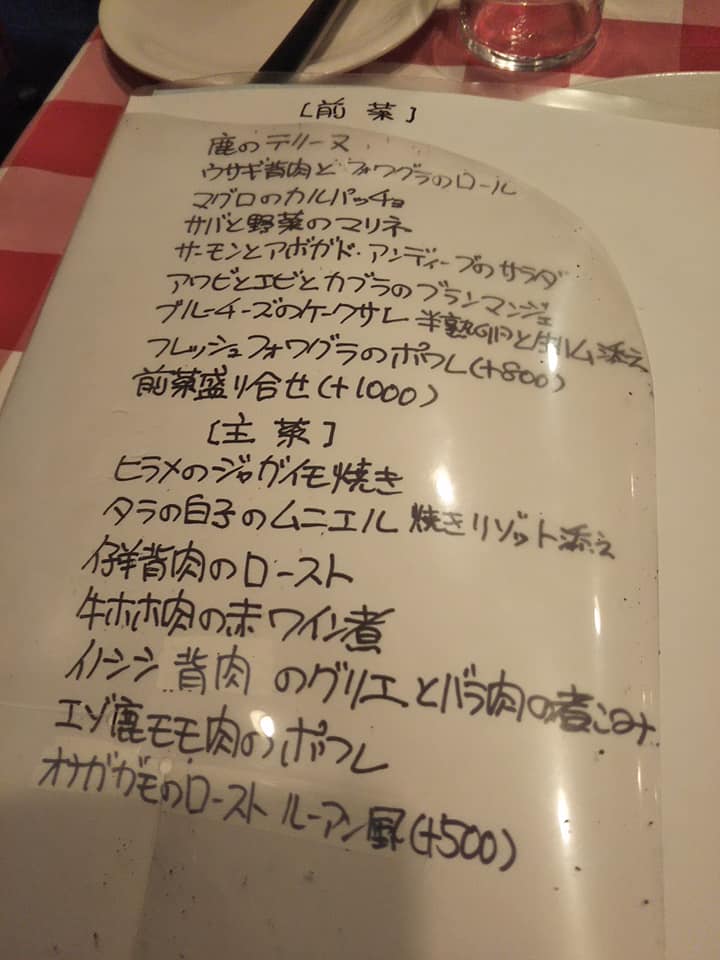 [前菜]
鹿のテリーヌ
ウサギ背肉とフォワグラのロール
マグロのカルパッチョ
サバと野菜のマリネ
サーモンとアボガド・アンディーブのサラダ
アワビとエビとカブラのブランマンジェ
ブルーチーズのケークサレ 半熟卵と生ハム添え
フレッシュフォワグラのポワレ(+800)
前菜盛り合せ(+1000)
[主菜]
ヒラメのジャガイモ焼き
タラの白子のムニエル 焼きリゾット添え
仔羊背肉のロースト
牛ホホ肉の赤ワイン煮
イノシシ 背肉 のグリエとバラ肉の煮こみ
エゾ鹿モモ肉のポワレ
オナガガモのロースト ルーアン風(+500)